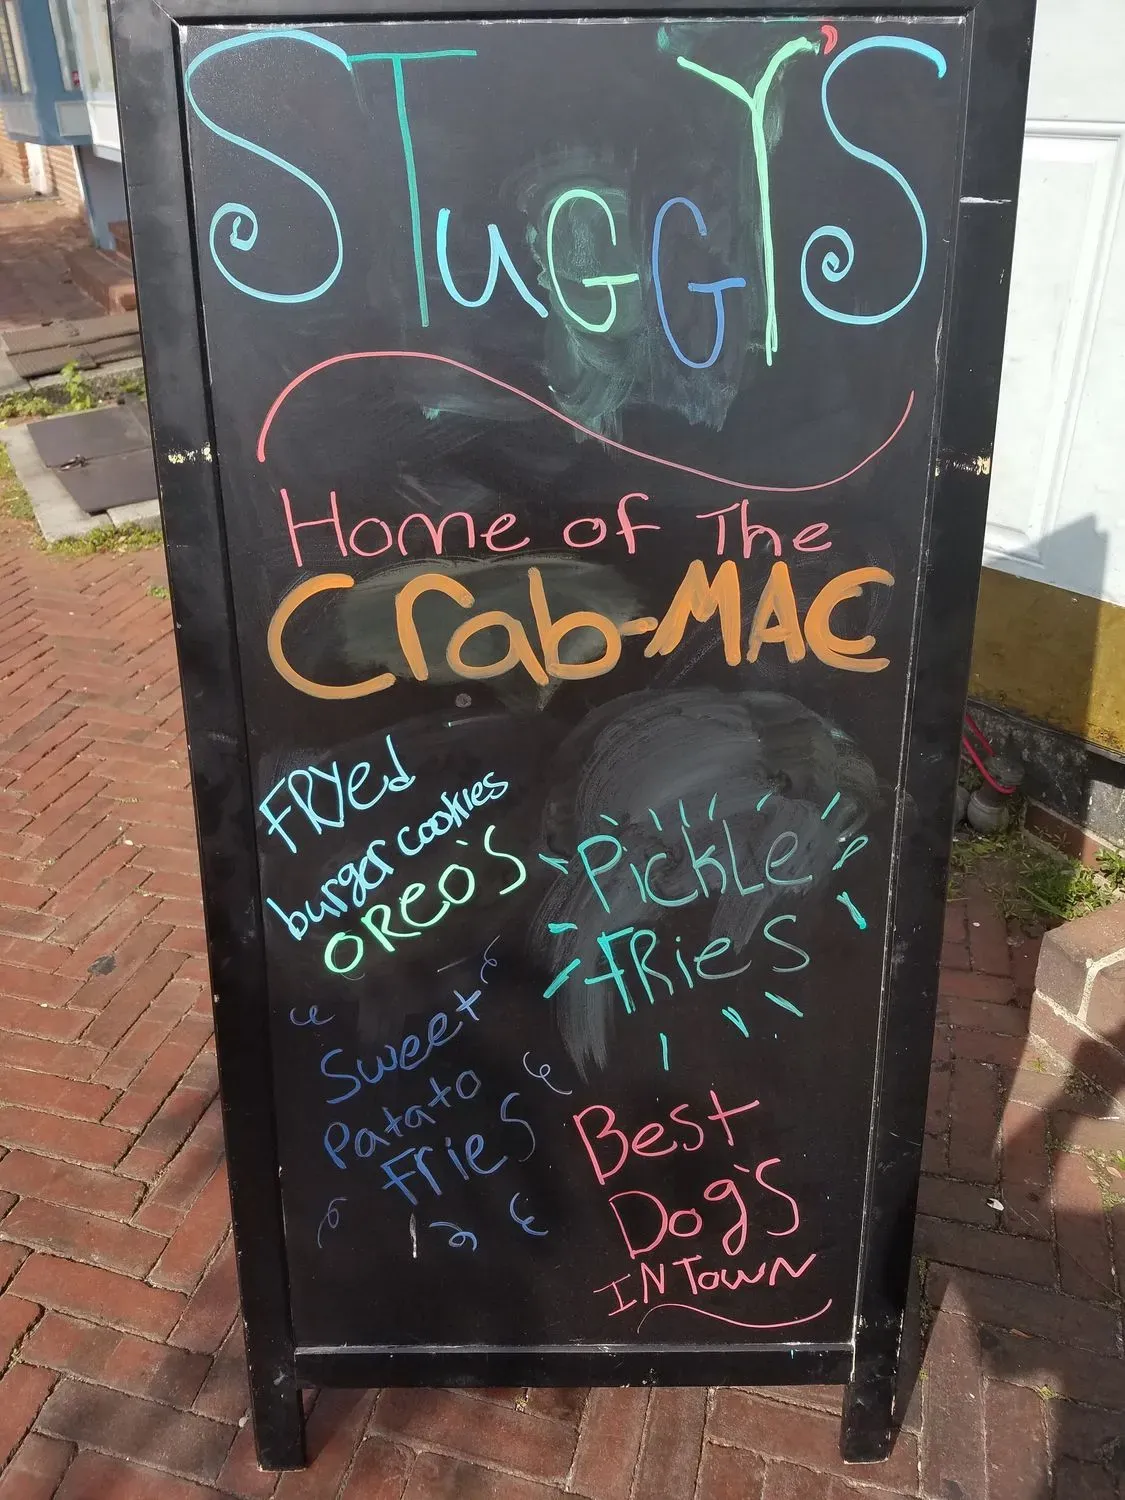 STuGGY'S
Home of The
Crab-MAC
FRYed
burger cookies
OREO'S
Pickle
FRieS
"Sweet
Patato
FrieS
Best
Dog'S
IN TowN